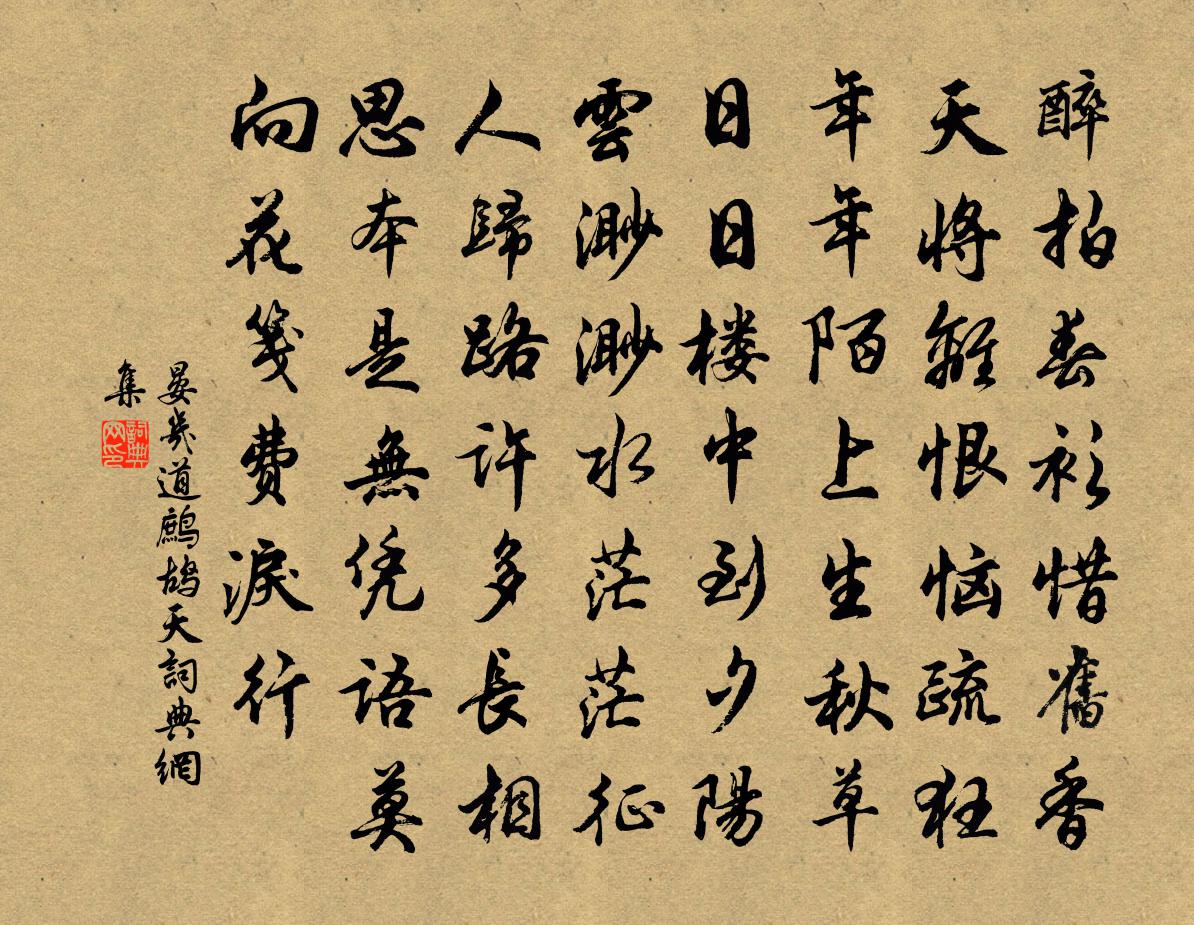 醉拍春衫惜舊香
天將離恨惱疏狂
年年陌上生秋草
日日楼中到夕陽
雲渺渺水茫茫征
人歸路許多長相
思本是無凭語莫
向花箋費淚行
晏幾道鷓鴣天詞典網
集
詞典
网印